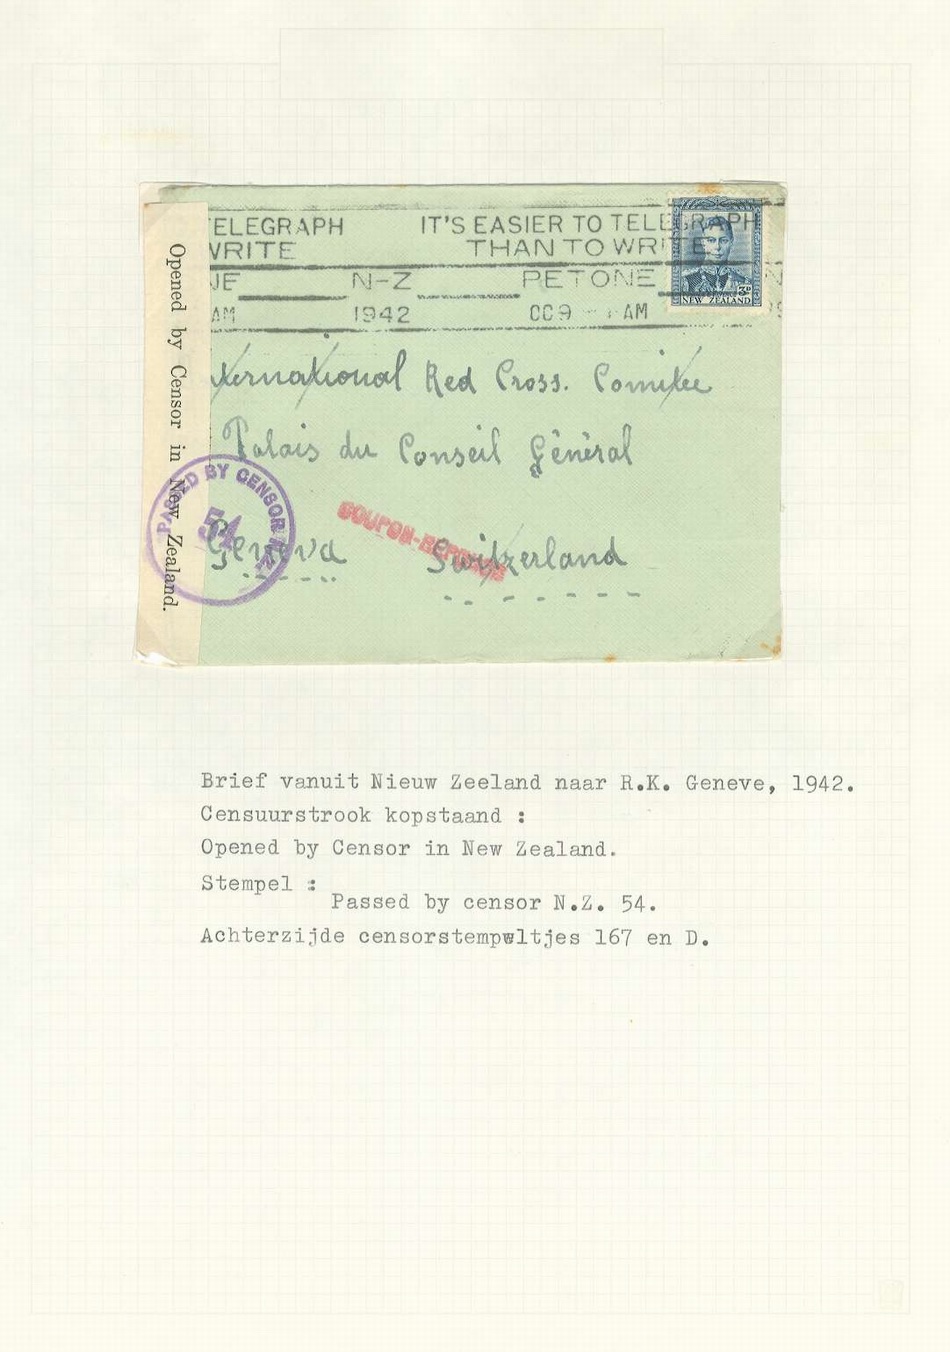 TELEGRAPH IT'S EASIER TO TELEGRAPH
WRITE THAN TO WRITE
N-Z PETONE
AM 1942 AM
3d
NEW ZEALAND
Opened by Censor in New Zealand.
International Red Cross. Comitee
Palais du Conseil Général
PASSED BY CENSOR N.Z.
54
Geneva Switzerland
COUPON-REPONSE
Brief vanuit Nieuw Zeeland naar R.K. Geneve, 1942.
Censuurstrook kopstaand :
Opened by Censor in New Zealand.
Stempel :
Passed by censor N.Z. 54.
Achterzijde censorstempwltjes 167 en D.